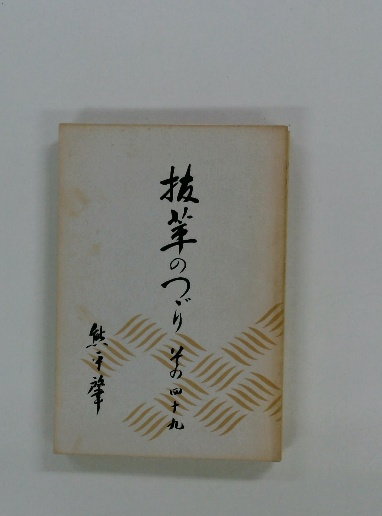 抜萃のつゞり その四十九
熊平肇